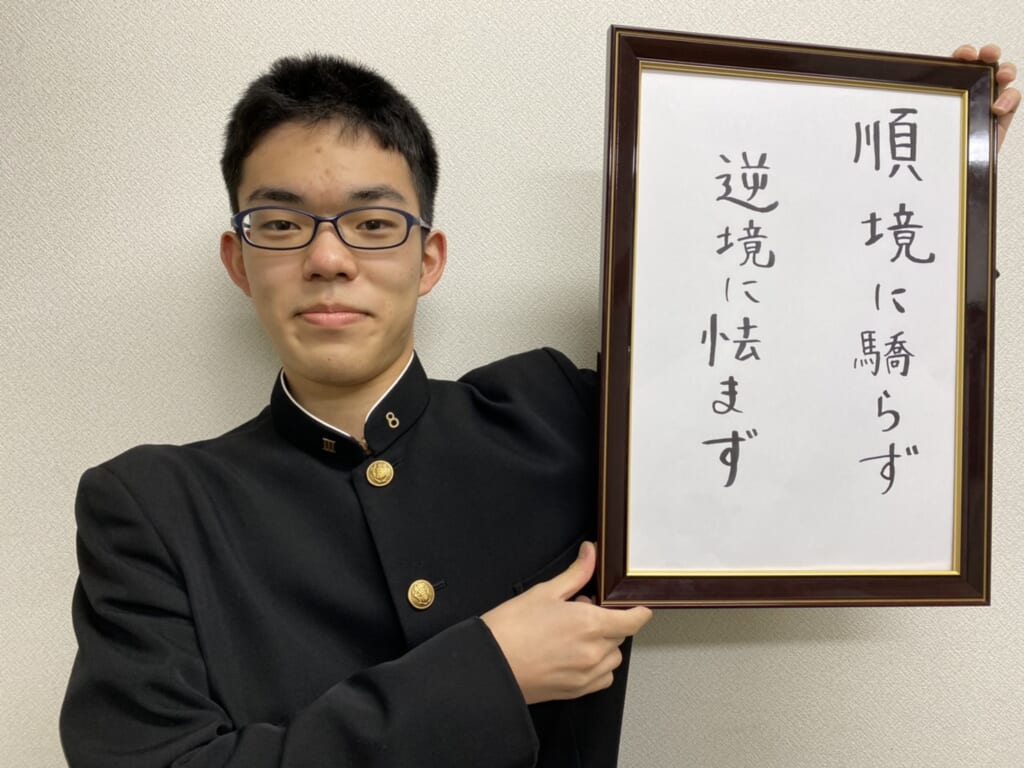 順境に驕らず
逆境に怯まず
III
8